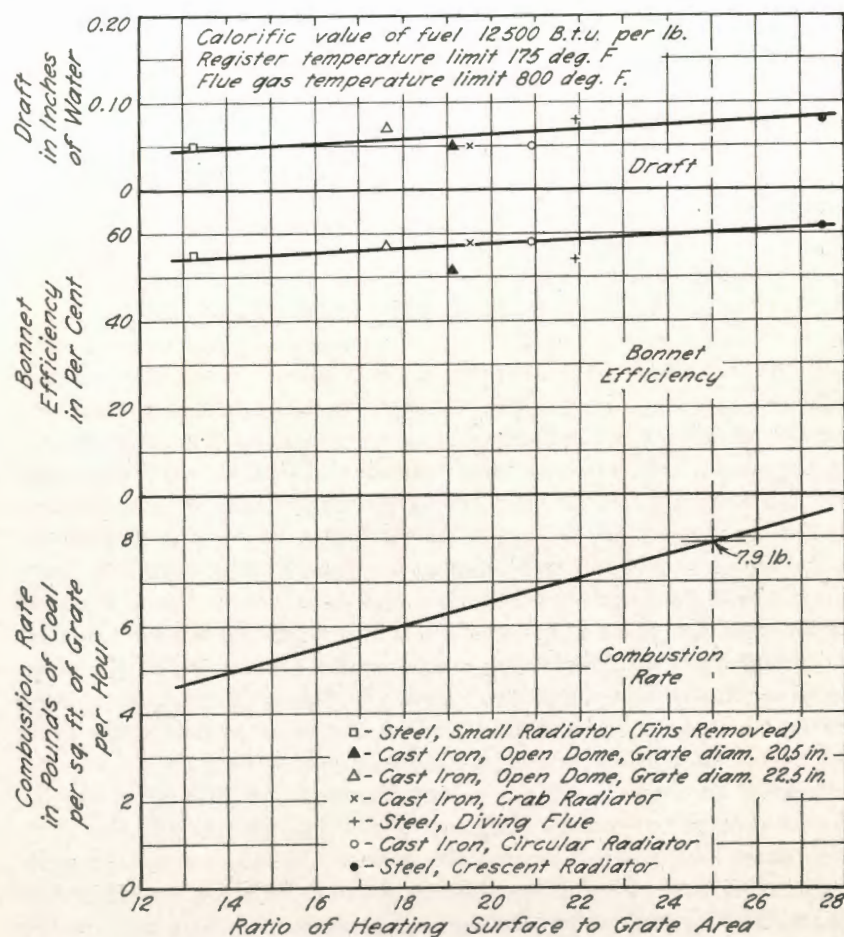 Calorific value of fuel 12500 B.t.u. per lb.
Register temperature limit 175 deg. F
Flue gas temperature limit 800 deg. F.
Draft
in Inches
of Water
0.20
0.10
0
Draft
Bonnet
Efficiency
in Per Cent
60
40
20
0
Bonnet
Efficiency
Combustion Rate
in Pounds of Coal
per sq. ft. of Grate
per Hour
8
6
4
2
0
7.9 lb.
Combustion
Rate
- Steel, Small Radiator (Fins Removed)
- Cast Iron, Open Dome, Grate diam. 20.5 in.
- Cast Iron, Open Dome, Grate diam. 22.5 in.
- Cast Iron, Crab Radiator
- Steel, Diving Flue
- Cast Iron, Circular Radiator
- Steel, Crescent Radiator
12 14 16 18 20 22 24 26 28
Ratio of Heating Surface to Grate Area